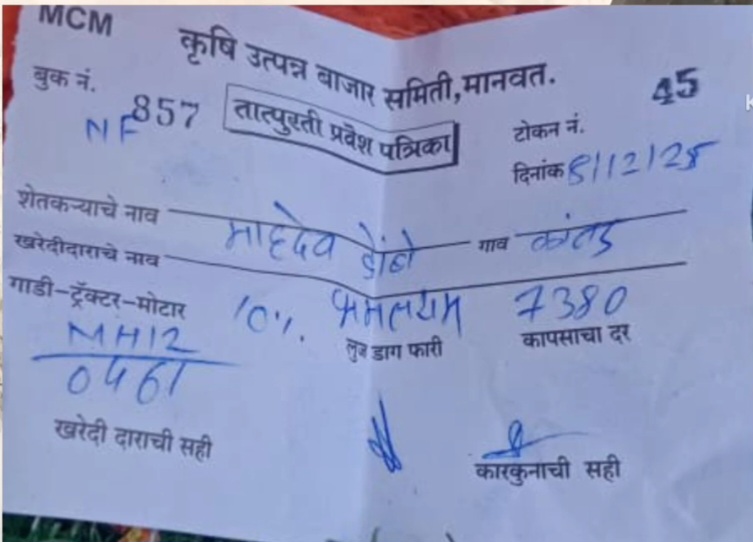 MCM
कृषि उत्पन्न बाजार समिती,मानवत.
बुक नं. 857 45
NF तात्पुरती प्रवेश पत्रिका टोकन नं.
दिनांक 8/12/25
शेतकऱ्याचे नाव गाव
खरेदीदाराचे नाव
गाडी-ट्रॅक्टर-मोटार 10%. 7380
MH12 लुज डाग फारी कापसाचा दर
0461
खरेदी दाराची सही कारकुनाची सही